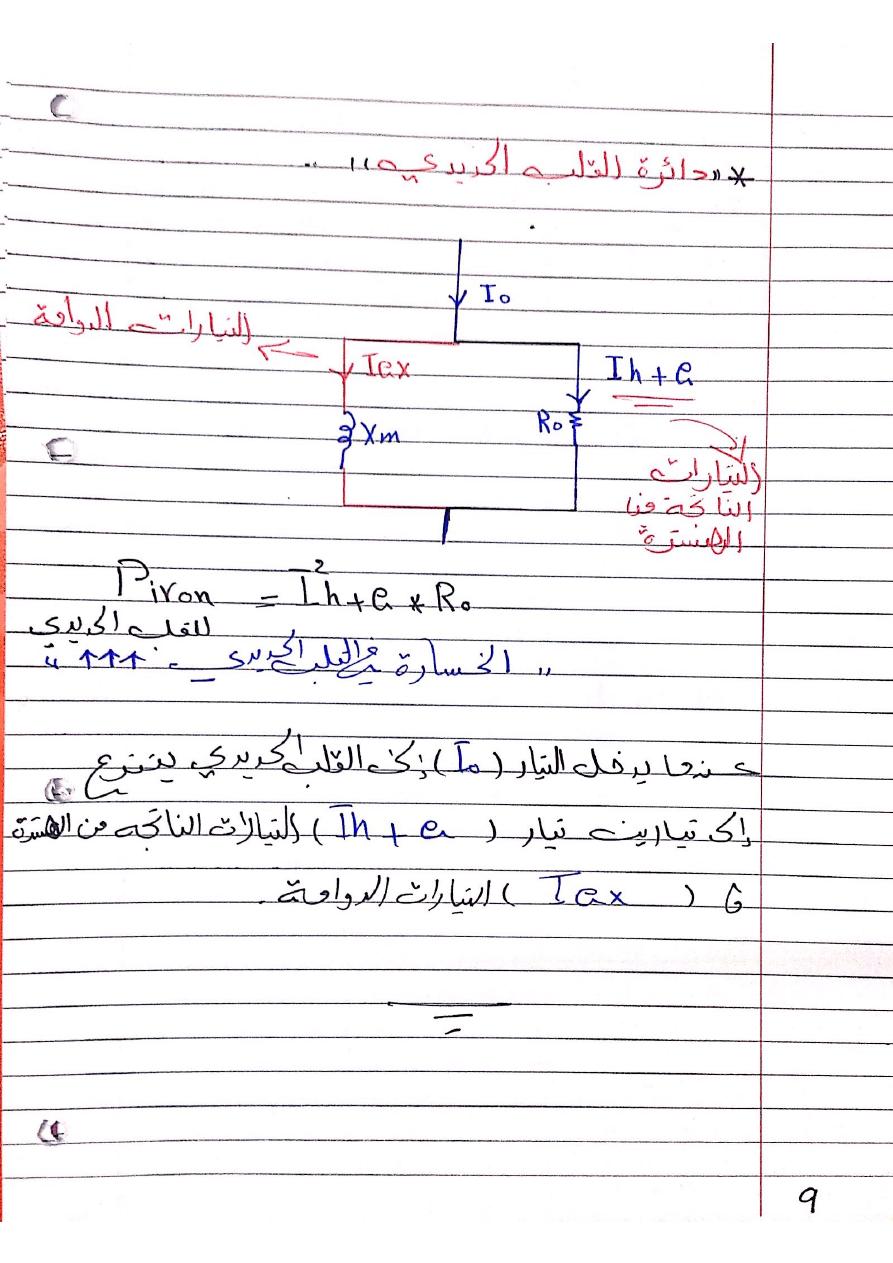 * "دائرة القلب الحديدي"
I₀
التيارات الدوامة
Iex
Ih+e
Xm
R₀
التيارات
الناتجة من
الهسترة
Piron = I²h+e * R₀
للقلب الحديدي
" الخسارة في القلب الحديدي ↑↑↑ "
عندما يدخل التيار (I₀) إلى القلب الحديدي يتفرع
إلى تيارين تيار (Ih+e) التيارات الناتجه من الهسترة
و (Iex) التيارات الدوامة.
9